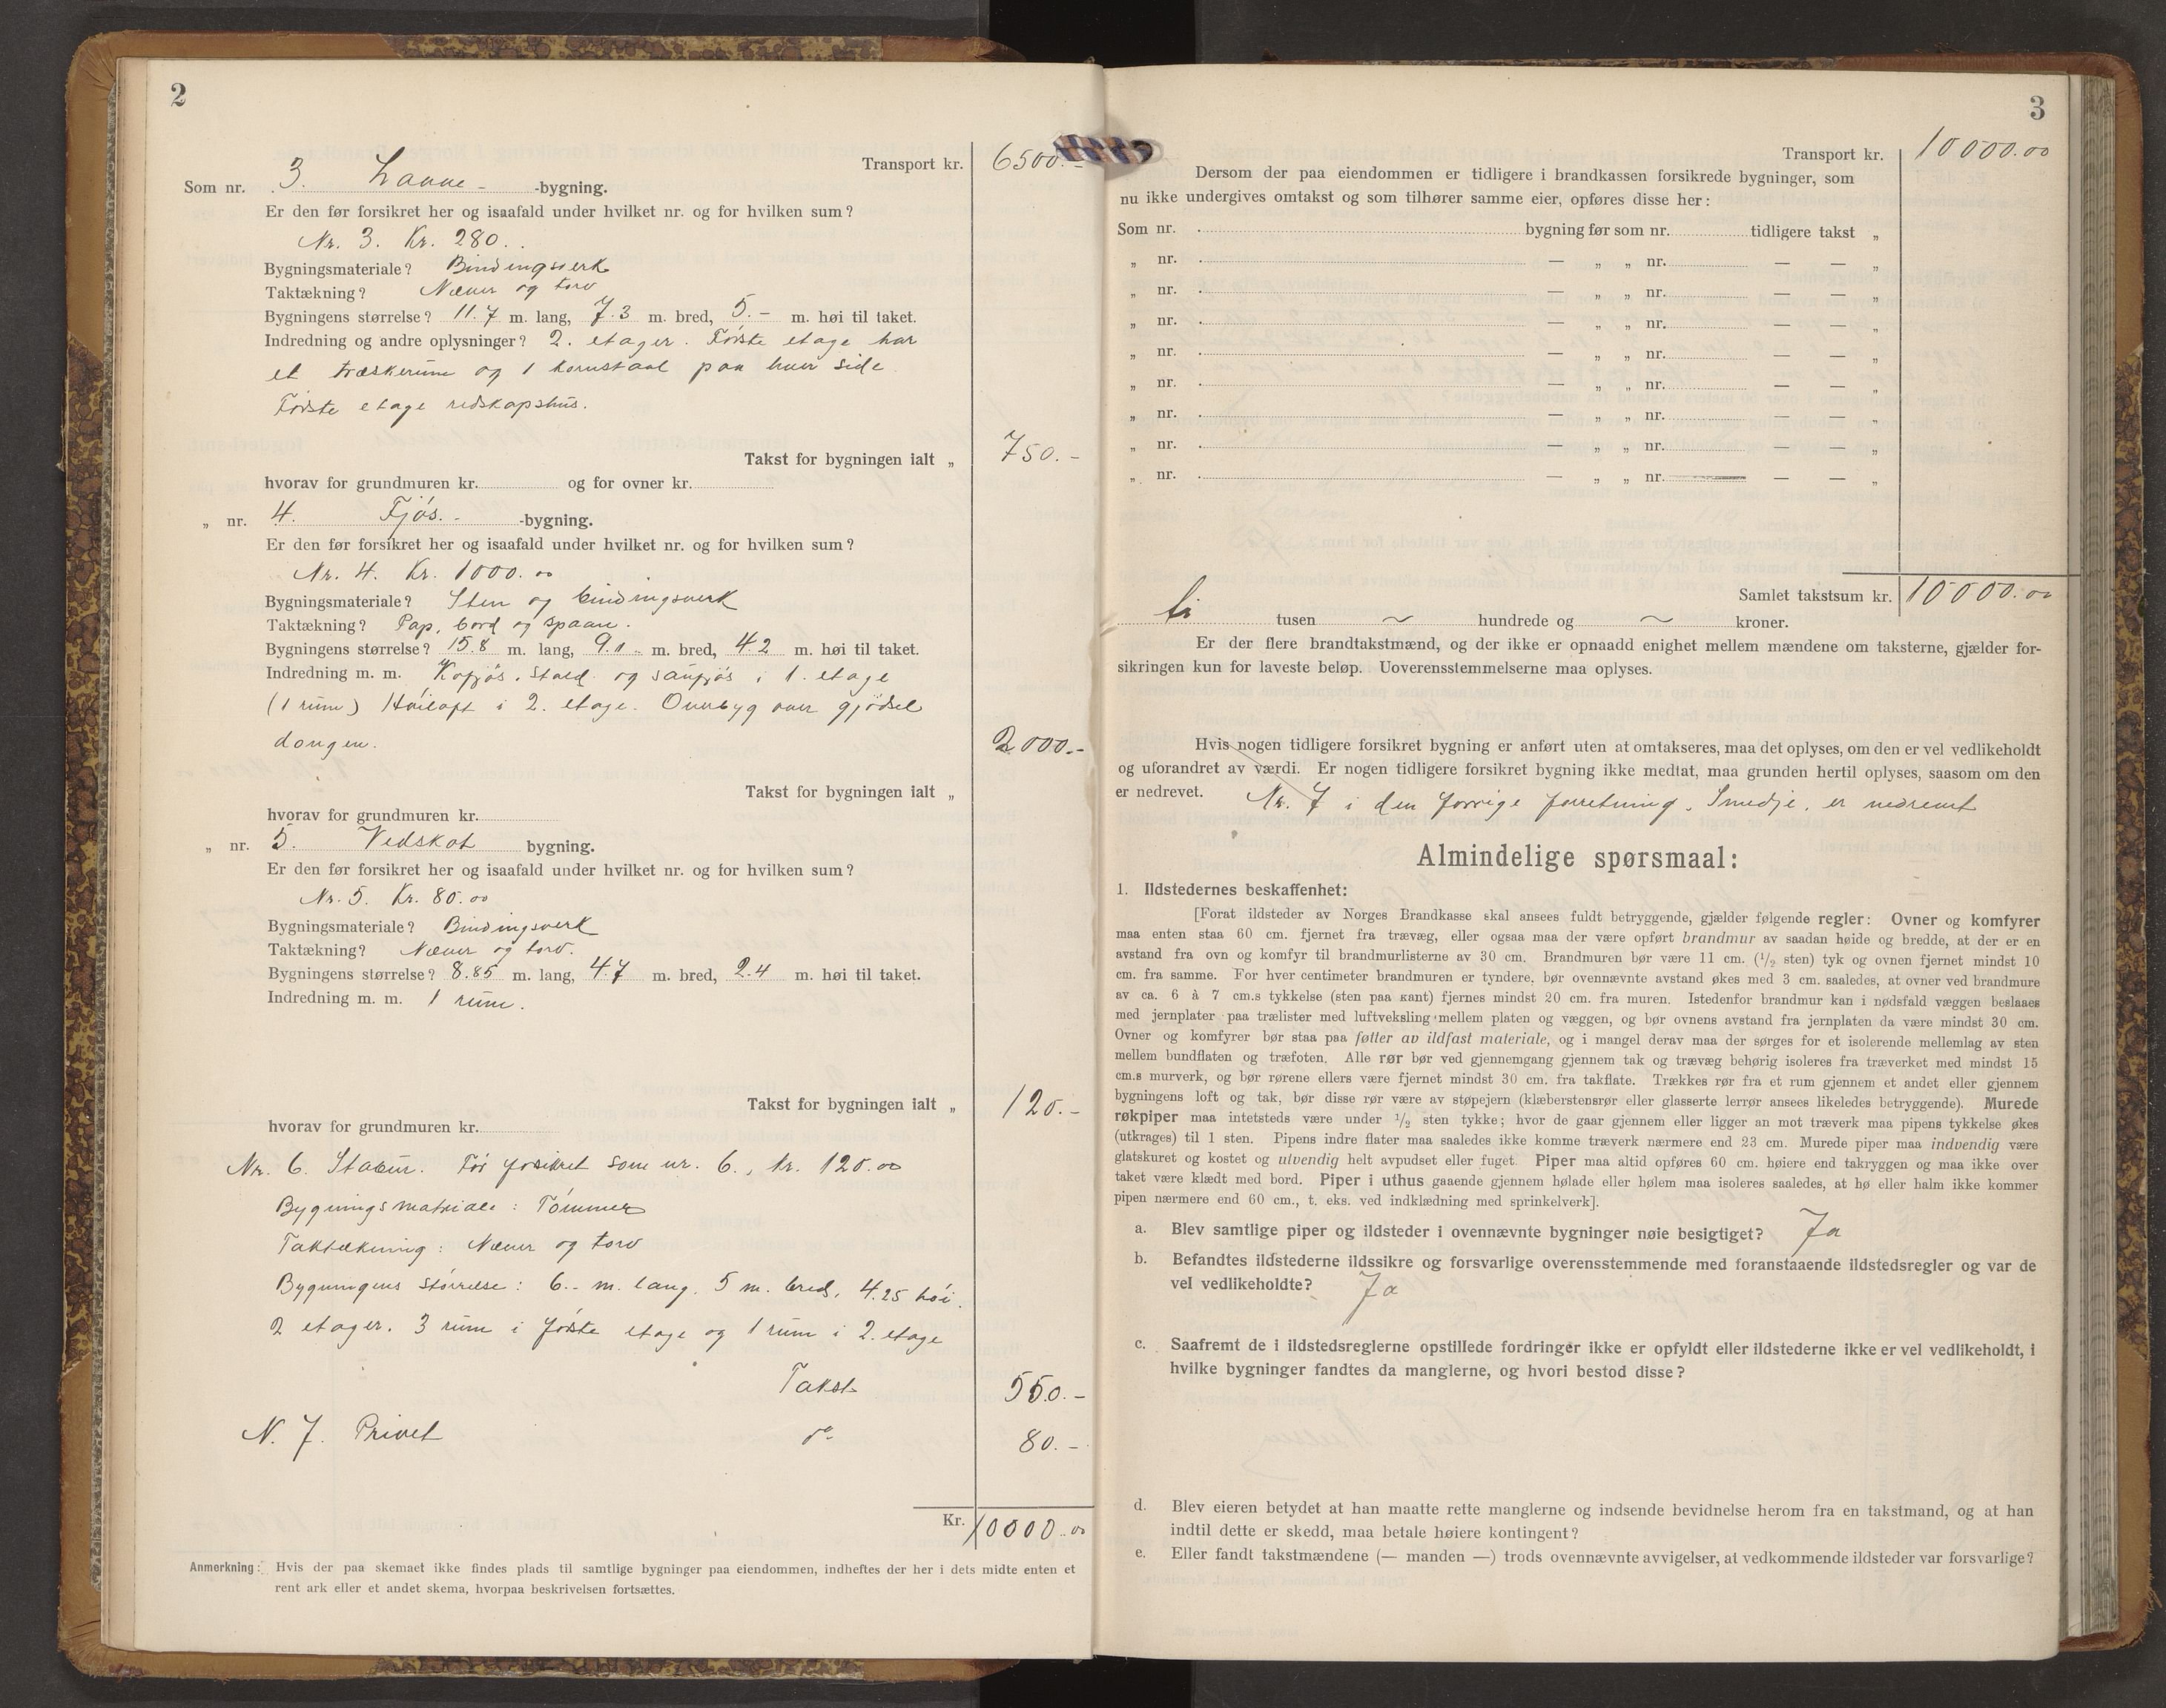 2
Transport kr. 6500.-
Som nr. 3. Laave- -bygning.
Er den før forsikret her og isaafald under hvilket nr. og for hvilken sum?
Nr. 3. Kr. 280..
Bygningsmateriale? Bindingsverk
Taktækning? Næver og torv
Bygningens størrelse? 11.7 m. lang, 7.3 m. bred, 5.- m. høi til taket.
Indredning og andre oplysninger? 2. etager. Første etage har
et træskerum og 1 kornstaal paa hver side
Første etage redskapshus.
Takst for bygningen ialt „ 750.-
hvorav for grundmuren kr. og for ovner kr.
„ nr. 4. Fjøs.- -bygning.
Er den før forsikret her og isaafald under hvilket nr. og for hvilken sum?
Nr. 4. Kr. 1000.00
Bygningsmateriale? Sten og bindingsverk
Taktækning? Pap, bord og spaan.
Bygningens størrelse? 15.8 m. lang, 9.0 m. bred, 4.2 m. høi til taket.
Indredning m. m. Kofjøs, stald og saufjøs i 1. etage
(1 rum) Høiloft i 2. etage. Overbyg over gjødsel
dongen. 2000.-
Takst for bygningen ialt „
hvorav for grundmuren kr.
„ nr. 5. Vedskot bygning.
Er den før forsikret her og isaafald under hvilket nr. og for hvilken sum?
Nr. 5. Kr. 80.00
Bygningsmateriale? Bindingsverk
Taktækning? Næver og torv.
Bygningens størrelse? 8.85 m. lang, 4.7 m. bred, 2.4 m. høi til taket.
Indredning m. m. 1 rum.
Takst for bygningen ialt „ 120.-
hvorav for grundmuren kr.
Nr. 6. Stabur. Før forsikret som nr. 6., kr. 120.00
Bygningsmateriale: Tømmer
Taktækning: Næver og torv
Bygningens størrelse: 6.- m. lang, 5 m. bred, 4.25 høi.
2 etager. 3 rum i første etage og 1 rum i 2. etage
Takst 550.-
N. 7. Privet do 80.-
Kr. 10000.00
Anmerkning: Hvis der paa skemaet ikke findes plads til samtlige bygninger paa eiendommen, indheftes der her i dets midte enten et
rent ark eller et andet skema, hvorpaa beskrivelsen fortsættes.
3
Transport kr. 10000.00
Dersom der paa eiendommen er tidligere i brandkassen forsikrede bygninger, som
nu ikke undergives omtakst og som tilhører samme eier, opføres disse her:
Som nr. bygning før som nr. tidligere takst „
„ nr. — „ „ nr. — — „
„ nr. — „ „ nr. — — „
„ nr. — „ „ nr. — — „
„ nr. — „ „ nr. — — „
„ nr. — „ „ nr. — — „
„ nr. — „ „ nr. — — „
„ nr. — „ „ nr. — — „
„ nr. — „ „ nr. — — „
Samlet takstsum kr. 10000.00
ti tusen ~ hundrede og ~ kroner.
Er der flere brandtakstmænd, og der ikke er opnaadd enighet mellem mændene om taksterne, gjælder for-
sikringen kun for laveste beløp. Uoverensstemmelserne maa oplyses.
Hvis nogen tidligere forsikret bygning er anført uten at omtakseres, maa det oplyses, om den er vel vedlikeholdt
og uforandret av værdi. Er nogen tidligere forsikret bygning ikke medtat, maa grunden hertil oplyses, saasom om den
er nedrevet. Nr. 7 i den forrige forretning, Smedje, er nedrevet
Almindelige spørsmaal:
1. Ildstedernes beskaffenhet:
[Forat ildsteder av Norges Brandkasse skal ansees fuldt betryggende, gjælder følgende regler: Ovner og komfyrer
maa enten staa 60 cm. fjernet fra trævæg, eller ogsaa maa der være opført brandmur av saadan høide og bredde, at der er en
avstand fra ovn og komfyr til brandmurlisterne av 30 cm. Brandmuren bør være 11 cm. (1/2 sten) tyk og ovnen fjernet mindst 10
cm. fra samme. For hver centimeter brandmuren er tyndere, bør ovennævnte avstand økes med 3 cm. saaledes, at ovner ved brandmure
av ca. 6 à 7 cm.s tykkelse (sten paa kant) fjernes mindst 20 cm. fra muren. Istedenfor brandmur kan i nødsfald væggen beslaaes
med jernplater paa trælister med luftveksling mellem platen og væggen, og bør ovnens avstand fra jernplaten da være mindst 30 cm.
Ovner og komfyrer bør staa paa føtter av ildfast materiale, og i mangel derav maa der sørges for et isolerende mellemlag av sten
mellem bundflaten og træfoten. Alle rør bør ved gjennemgang gjennem tak og trævæg behørig isoleres fra træverket med mindst 15
cm.s murverk, og bør rørene ellers være fjernet mindst 30 cm. fra takflate. Trækkes rør fra et rum gjennem et andet eller gjennem
bygningens loft og tak, bør disse rør være av støpejern (klæberstensrør eller glasserte lerrør ansees likeledes betryggende). Murede
røkpiper maa intetsteds være under 1/2 sten tykke; hvor de gaar gjennem eller ligger an mot træverk maa pipens tykkelse økes
(utkrages) til 1 sten. Pipens indre flater maa saaledes ikke komme træverk nærmere end 23 cm. Murede piper maa indvendig være
glatskuret og kostet og utvendig helt avpudset eller fuget. Piper maa altid opføres 60 cm. høiere end takryggen og maa ikke over
taket være klædt med bord. Piper i uthus gaaende gjennem hølade eller hølem maa isoleres saaledes, at hø eller halm ikke kommer
pipen nærmere end 60 cm., t. eks. ved indklædning med sprinkelverk].
a. Blev samtlige piper og ildsteder i ovennævnte bygninger nøie besigtiget? Ja
b. Befandtes ildstederne ildssikre og forsvarlige overensstemmende med foranstaaende ildstedsregler og var de
vel vedlikeholdte? Ja
c. Saafremt de i ildstedsreglerne opstillede fordringer ikke er opfyldt eller ildstederne ikke er vel vedlikeholdt, i
hvilke bygninger fandtes da manglerne, og hvori bestod disse?
d. Blev eieren betydet at han maatte rette manglerne og indsende bevidnelse herom fra en takstmand, og at han
indtil dette er skedd, maa betale høiere kontingent?
e. Eller fandt takstmændene (— manden —) trods ovennævnte avvigelser, at vedkommende ildsteder var forsvarlige?